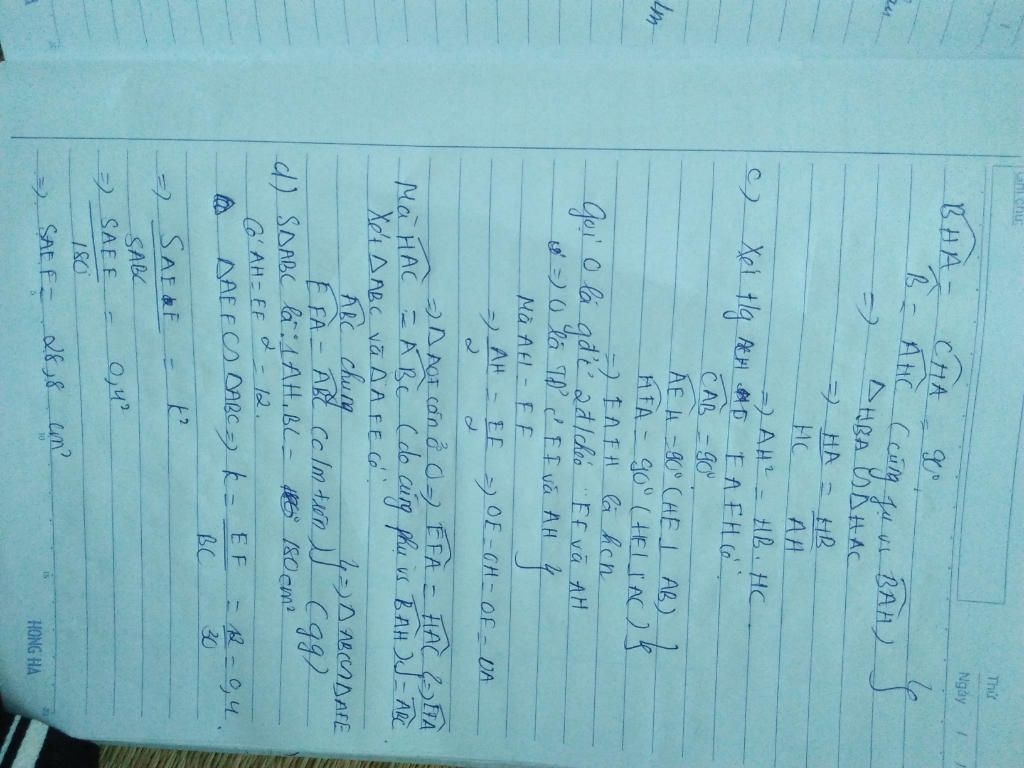 Thứ
Ngày
BHA = CHA = 90°
B = AHC (cùng phụ vs BAH) }
=> △HBA ∽ △HAC
=> HA/HC = HB/AH
=> AH² = HB.HC
c) Xét tg EAFHCó
CAB = 90°
AEH = 90° (HE ⊥ AB) }
AFA = 90° (HF ⊥ AC)
=> EAFH là hcn
Gọi O là gđ 2 đ/chéo EF và AH
=> O là TĐ EF và AH }
Mà AH = EF
=> AH/2 = EF/2 => OE = OH = OF = OA
=> △AOF cân ở O => EFA = HAC
Mà HAC = ABC (do cùng phụ vs BAH) = ABC
Xét △ABC và △AFE có
ABC chung
EFA = ABC (c/m trên) } => △ABC ∽ △AFE (gg)
d) S△ABC là: 1/2 AH.BC = 180cm²
Có AH = EF = 12.
△AEF ∽ △ABC => k = EF/BC = 12/30 = 0,4.
=> SAEF/SABC = k²
=> SAEF/180 = 0,4²
=> SAEF = 28,8 cm²
HONG HA